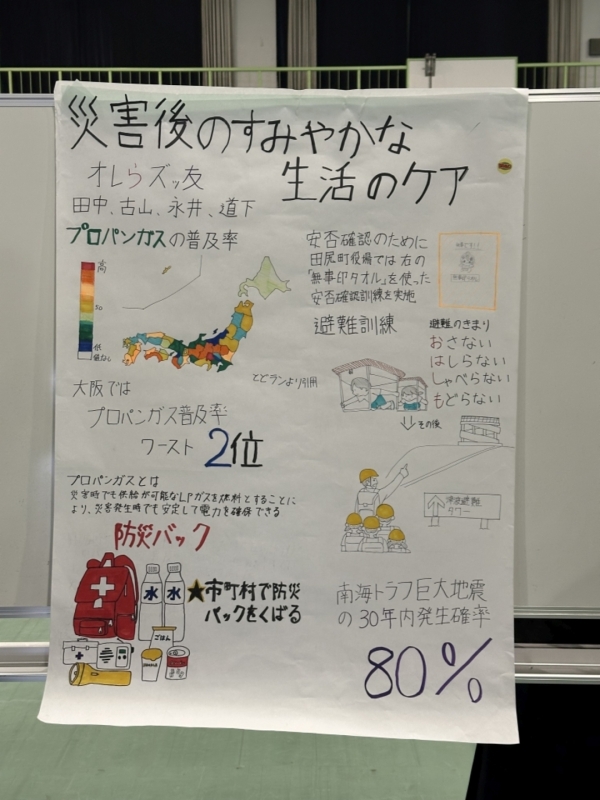 災害後のすみやかな
生活のケア
オレらズッ友
田中、古山、永井、道下
プロパンガスの普及率
高
50
低
とどランより引用
大阪では
プロパンガス普及率
ワースト2位
プロパンガスとは
災害時でも供給が可能なLPガスを燃料とすることに
より、災害発生時でも安定して電力を確保できる
防災バック
水 水
ごはん
★市町村で防災
バックをくばる
安否確認のために
田尻町役場では右の
「無事印タオル」を使った
安否確認訓練を実施
避難訓練
避難のきまり
おさない
はしらない
しゃべらない
もどらない
その後
津波避難
タワー
南海トラフ巨大地震
の30年内発生確率
80%